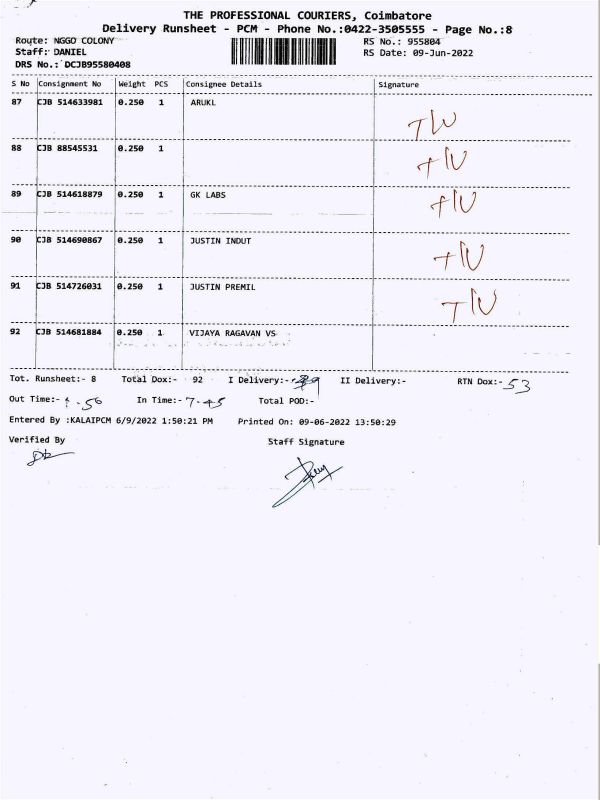 THE PROFESSIONAL COURIERS, Coimbatore
Delivery Runsheet - PCM - Phone No.:0422-3505555 - Page No.:8
Route: NGGO COLONY RS No.: 955804
Staff: DANIEL RS Date: 09-Jun-2022
DRS No.: DCJB95580408
S No Consignment No Weight PCS Consignee Details Signature
87 CJB 514633981 0.250 1 ARUKL
88 CJB 88545531 0.250 1
89 CJB 514618879 0.250 1 GK LABS
90 CJB 514690867 0.250 1 JUSTIN INDUT
91 CJB 514726031 0.250 1 JUSTIN PREMIL
92 CJB 514681884 0.250 1 VIJAYA RAGAVAN VS
Tot. Runsheet:- 8 Total Dox:- 92 I Delivery:- II Delivery:- RTN Dox:- 53
Out Time:- In Time:- 7-45 Total POD:-
Entered By :KALAIPCM 6/9/2022 1:50:21 PM Printed On: 09-06-2022 13:50:29
Verified By Staff Signature